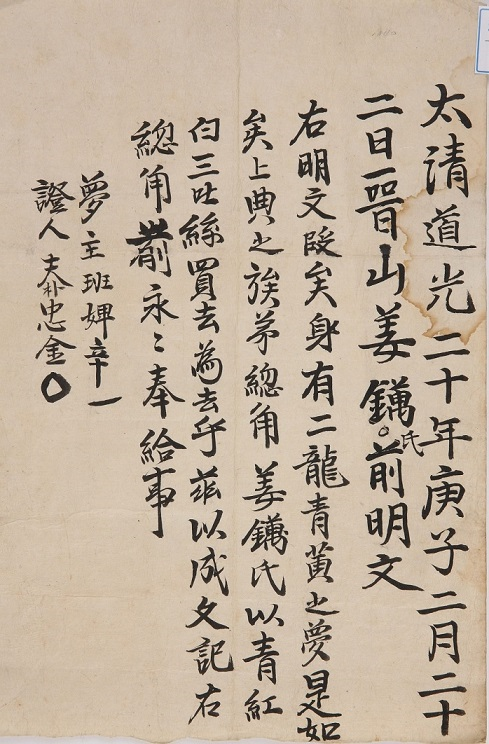 太清道光二十年庚子二月二十
二日晋山姜鏋氏前明文
右明文段矣身有二龍青黃之夢是如
矣上典之族弟總角姜鏋氏以青紅
白三吐絲買去為去乎茲以成文記右
總角前永〻奉給事
夢主班婢辛一
證人夫朴忠金